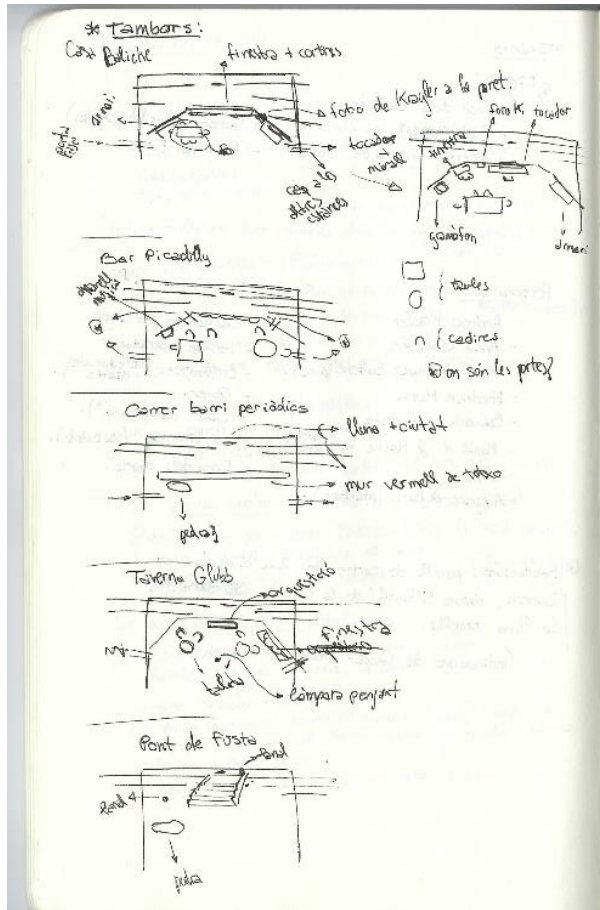 * Tambors:
Casa Baliche
finestra + cortines
armari
foto de Kragler a la paret.
tocador
+
mirall
cap a les
altres
estances
foto K.
tocador
finestra
gramòfon
armari
Bar Picadilly
taules
cadires
on són les portes?
Carrer barri periòdics
lluna + ciutat
mur vermell de totxo
pedra?
Taverna Glubb
orquestrió
finestra
taules
làmpara penjant
Pont de fusta
fanal
fanal
pedra